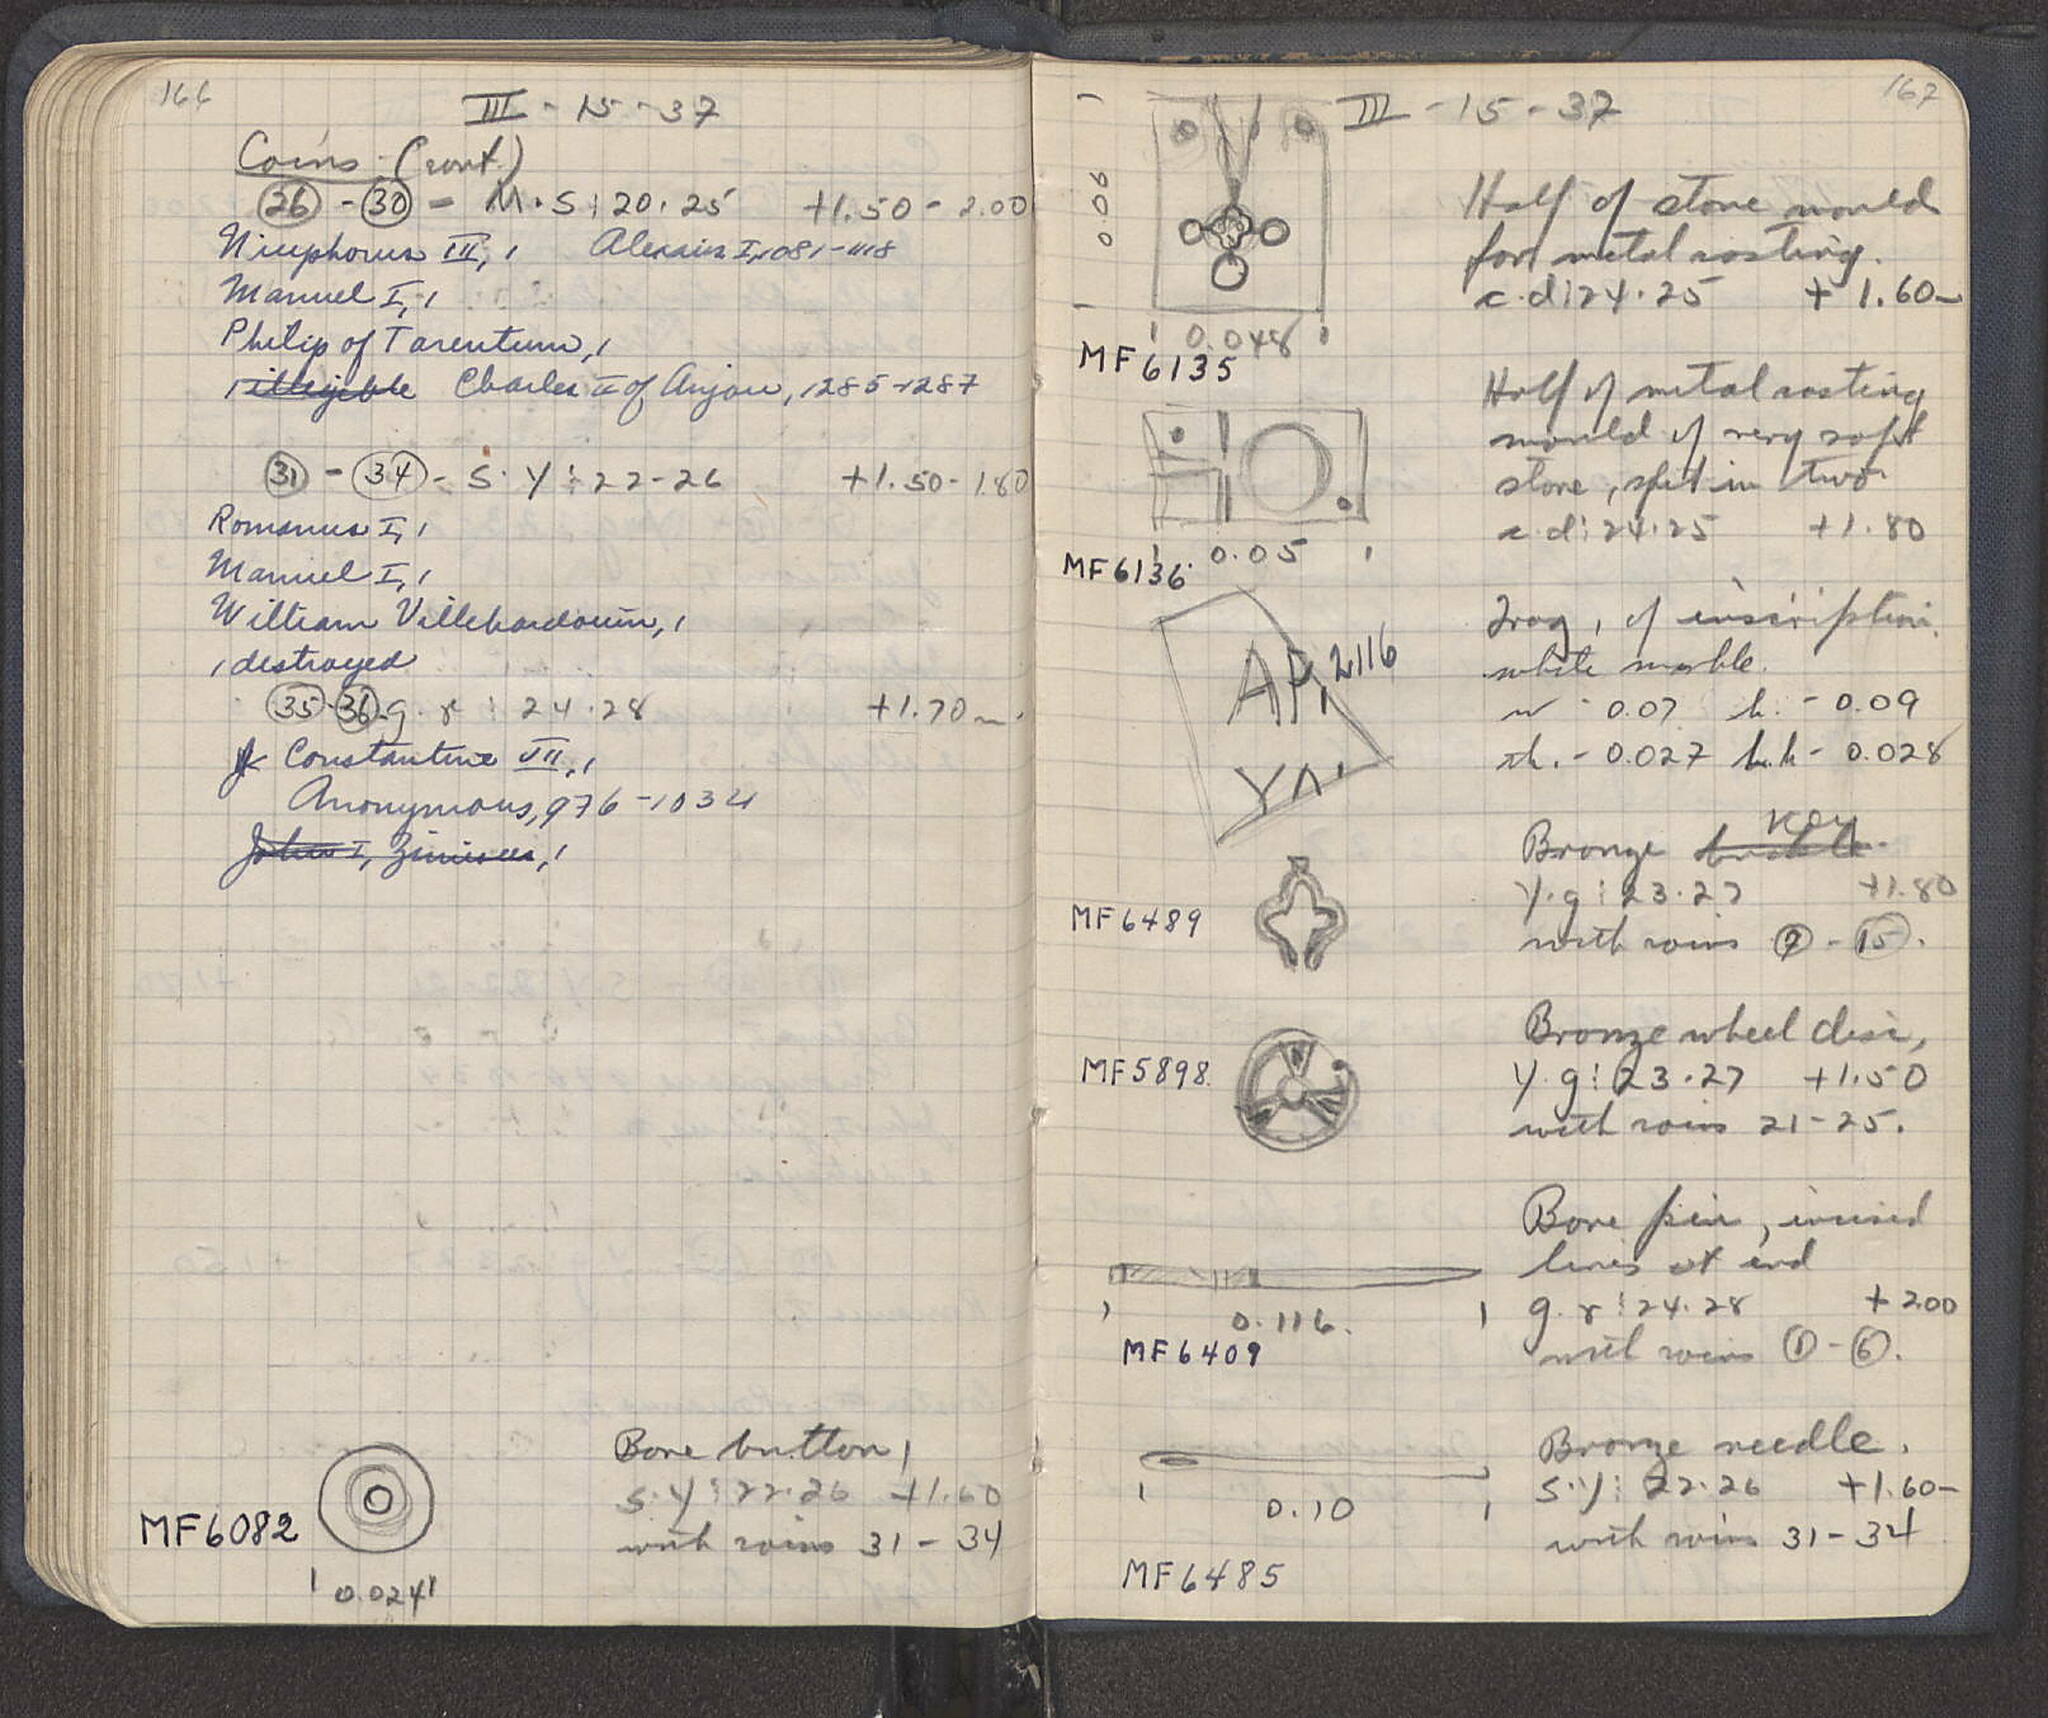 166
III - 15 - 37
Coins (cont.)
26 - 30 - M.S : 20.25 +1.50 - 2.00
Nicephorus III, 1 Alexius I, 1081-1118
Manuel I, 1
Philip of Tarentum, 1
1 illegible Charles II of Anjou, 1285-1287
31 - 34 - S.Y : 22-26 +1.50 - 1.80
Romanus I, 1
Manuel I, 1
William Villehardouin, 1
1 destroyed
35-36 g.r : 24.28 +1.70 m.
Constantine VII, 1
Anonymous, 976-1034
John I, Zimisces, 1
Bone button,
S.Y : 22.26 +1.60
with coins 31 - 34
MF6082
0.024
167
III - 15 - 37
0.06
0.048
MF6135
Half of stone mould
for metal casting.
c.d : 24.25 + 1.60
Half of metal casting
mould of very soft
stone, split in two
c.d : 24.25 +1.80
0.05
MF6136
2116
AP
YΛ
Frag. of inscription.
white marble.
w - 0.07 h. - 0.09
th. - 0.027 l.h - 0.028
Key
Bronze buckle.
Y.g : 23.27 +1.80
with coins 7 - 15.
MF6489
Bronze wheel disc,
Y.g : 23.27 +1.50
with coins 21-25.
MF5898
Bone pin, incised
lines at end
g.r : 24.28 +2.00
with coins 1 - 6.
0.116
MF6409
Bronze needle.
S.Y : 22.26 +1.60
with coins 31-34
0.10
MF6485